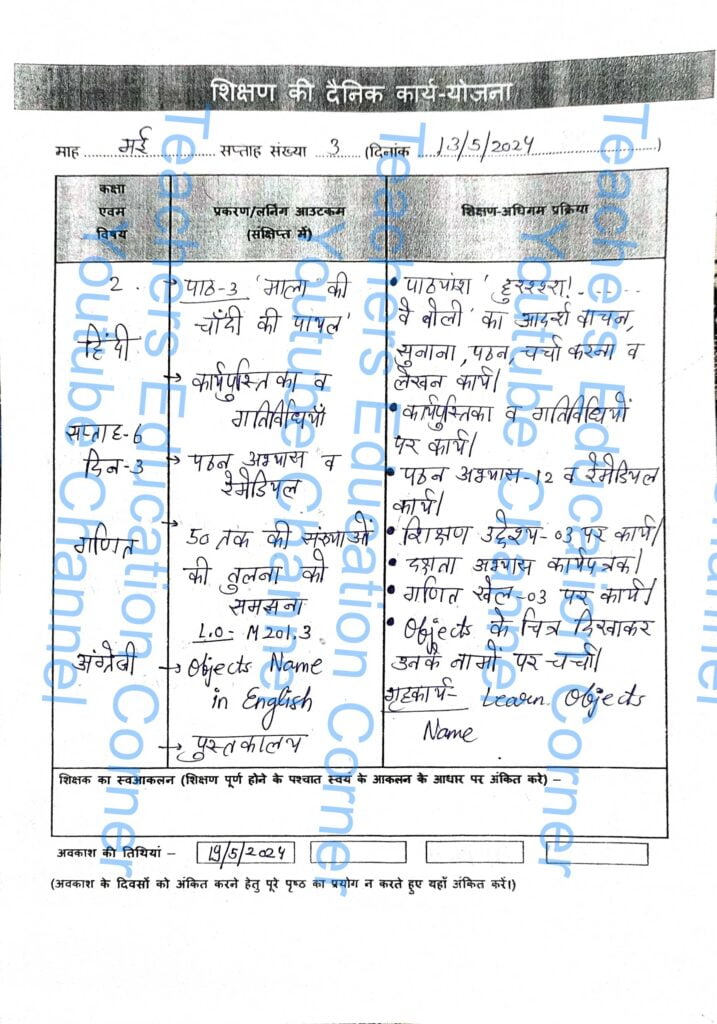 शिक्षण की दैनिक कार्य-योजना
माह मई सप्ताह संख्या 3 (दिनांक 13/5/2024)
कक्षा
एवम
विषय
प्रकरण/लर्निंग आउटकम
(संक्षिप्त में)
शिक्षण-अधिगम प्रक्रिया
2
हिंदी
सप्ताह-6
दिन-3
गणित
अंग्रेजी
→ पाठ-3 'माला की
चाँदी की पायल'
→ कार्यपुस्तिका व
गतिविधियाँ
→ पठन अभ्यास व
रेमेडियल
→ 50 तक की संख्याओं
की तुलना को
समझना
L.O- M201.3
→ Objects Name
in English
→ पुस्तकालय
• पाठ्यांश 'हुरश्श्श!......
वे बोली' का आदर्श वाचन,
सुनाना, पठन, चर्चा करना व
लेखन कार्य।
• कार्यपुस्तिका व गतिविधियों
पर कार्य।
• पठन अभ्यास-12 व रेमेडियल
कार्य।
• शिक्षण उद्देश्य-03 पर कार्य।
• दक्षता अभ्यास कार्यपत्रक।
• गणित खेल-03 पर कार्य।
• Objects के चित्र दिखाकर
उनके नामों पर चर्चा।
गृहकार्य- Learn Objects
Name
शिक्षक का स्वआकलन (शिक्षण पूर्ण होने के पश्चात स्वयं के आकलन के आधार पर अंकित करे) –
अवकाश की तिथियां – 19/5/2024
(अवकाश के दिवसों को अंकित करने हेतु पूरे पृष्ठ का प्रयोग न करते हुए यहाँ अंकित करें।)
Teachers Education Corner
Youtube Channel
Teachers Education Corner
Youtube Channel
Teachers Education Corner
Youtube Channel